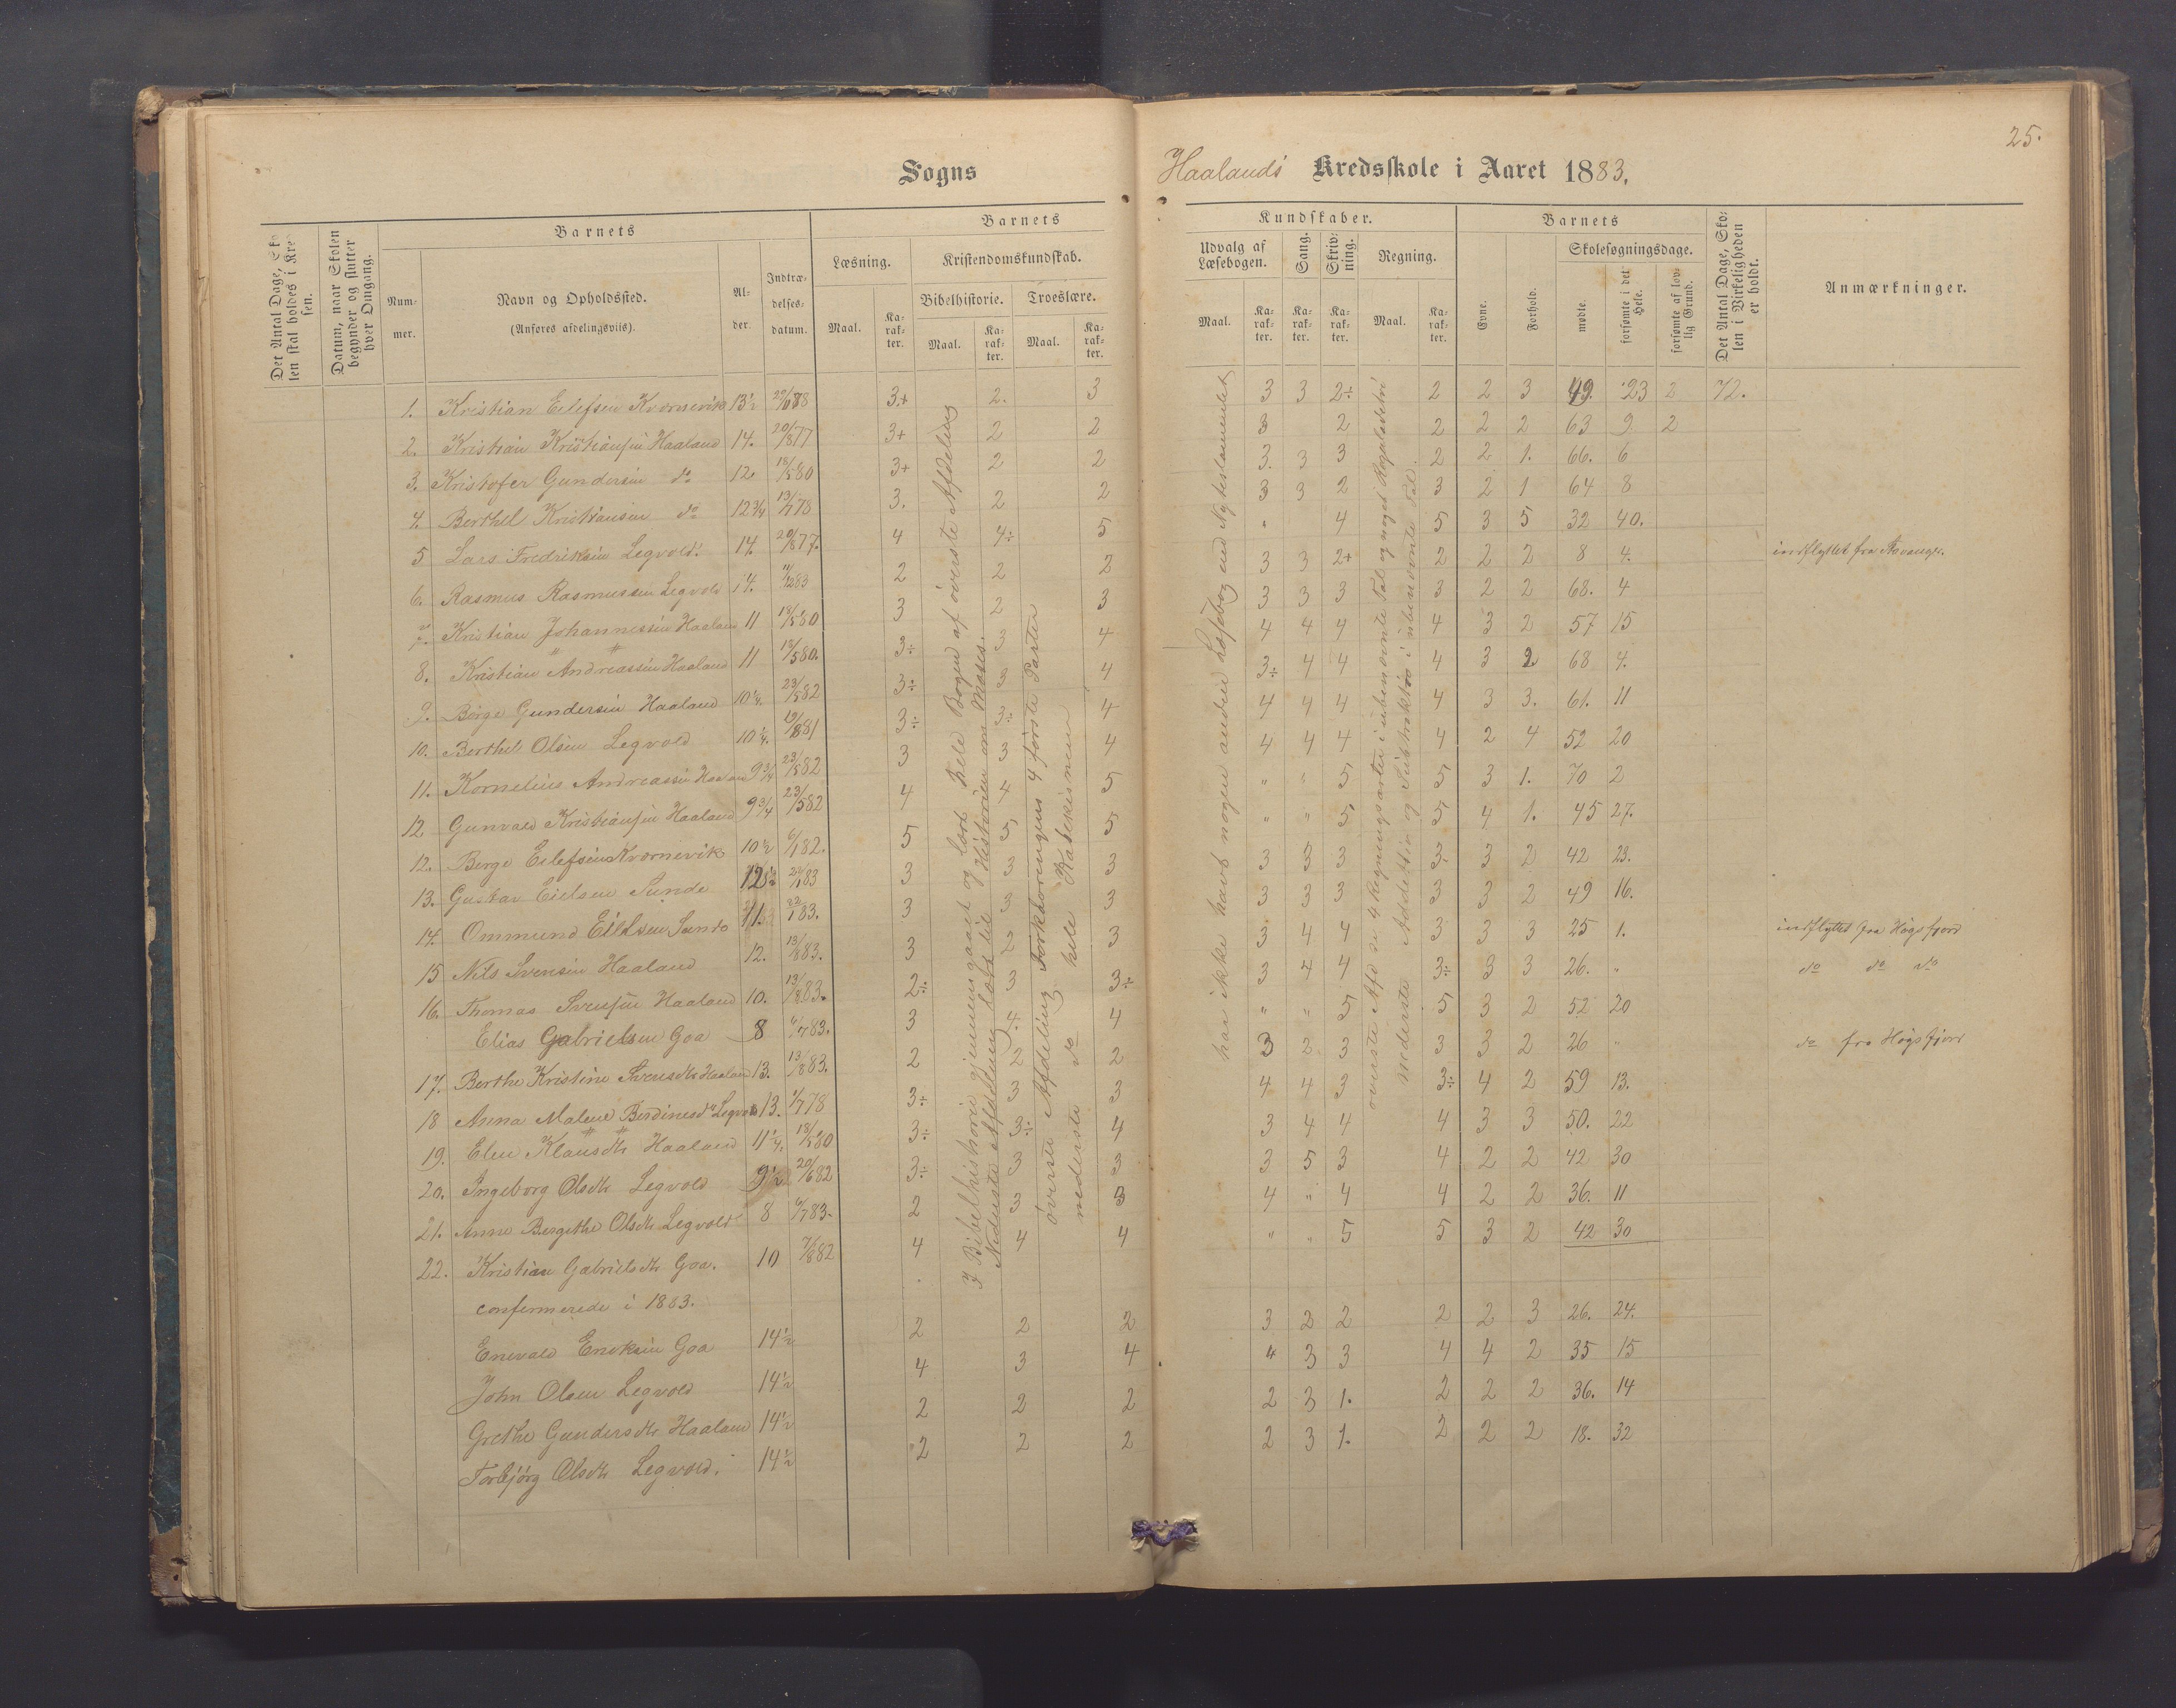 25.
Sogns Haalands Kredsskole i Aaret 1883.
Det Antal Dage, Sko-
len skal holdes i Kred-
sen.
Datum, naar Skolen
begynder og slutter
hver Omgang.
Barnets
Num-
mer.
Navn og Opholdssted.
(Anføres afdelingsviis).
Al-
der.
Indtræ-
delses-
datum.
Barnets Kundskaber.
Læsning.
Maal.
Ka-
rak-
ter.
Kristendomskundskab.
Bibelhistorie.
Maal.
Ka-
rak-
ter.
Troeslære.
Maal.
Ka-
rak-
ter.
Udvalg af
Læsebogen.
Maal.
Ka-
rak-
ter.
Sang.
Ka-
rak-
ter.
Skriv-
ning.
Ka-
rak-
ter.
Regning.
Maal.
Ka-
rak-
ter.
Barnets
Evne.
Forhold.
Skolesøgningsdage.
mødte.
forsømte i det
Hele.
forsømte af lov-
lig Grund.
Det Antal Dage, Sko-
len i Virkeligheden
er holdt.
Anmærkninger.
1. Kristian Eilefsen Kvornevik 13½ 3+ 2. 3 3 3 2÷ 2 2 3 49. 23 2 72.
2. Kristian Kristiansen Haaland 14. 20/8 77 3+ 2 2 3 2 2 2 2 63 9 2
3. Kristofer Gundersen do 12 18/5 80 3+ 2 2 3. 3 3 2 2 1. 66. 6
4. Berthel Kristiansen do 12¾ 13/7 78 3. 2 2 3 3 2 3 2 1 64 8
5 Lars Fredriksen Legvold. 14. 20/8 77. 4 4÷ 5 " 4 5 3 5 32 40.
6. Rasmus Rasmussen Legvold 14. 2 2 2 3 3 2+ 2 2 2 8 4. indflyttet fra
7. Kristian Johannessen Haaland 11 18/5 80 3 2 3 3 3 3 3 2 2 68. 4
8. Kristian Andreassen Haaland 11 18/5 80. 3÷ 3 4 4 4 4 4 3 2 57 15
9. Børge Gundersen Haaland 10¼. 23/5 82 3÷ 3 4 3÷ 4 4 4 3 2 68 4.
10. Berthel Olsen Legvold 10¼. 19/8 81 3÷ 3÷ 4 4 4 4 4 3 3. 61. 11
11. Kornelius Andreassen Haaland 9¾ 23/5 82 3 3 4 4 4 4 4 2 4 52 20
12 Gunvald Kristiansen Haaland 9¾ 23/5 82 4 4 5 " " 5 5 3 1. 70 2
12. Berge Eilefsen Kvornevik 10½ 5 5 5 " " 5 5 4 1. 45 27.
13. Gustav Eielsen Sunde 3 3 3 3 3 3 3 3 2 42 23.
14. Ommund Sunde 11. 3 3 3 3 3 3 3 3 2 49 16.
15 Nils Svensen Haaland 12. 13/8 83. 3 2 3 3 4 4 3 3 3 25 1. indflyttet fra Høgsfjord
16. Thomas Svensen Haaland 10. 13/8 83. 2÷ 3 3÷ 3 4 4 3÷ 3 3 26. " do do do
Elias Gabrielsen Goa 8 3 4÷ 4 " " 5 5 3 2 52 20
17. Berthe Kristine Svensdtr Haaland 13. 13/8 83. 2 2 2 3 2 3 3 3 2 26 " do fra Høgsfjord
18 Anna Malene Berdinesdtr Legvold 13. 3÷ 3 3 4 4 3 3÷ 4 2 59 13.
19. Elen Klausdtr Haaland 11¼. 18/5 80 3÷ 3÷ 4 3 4 4 4 3 3 50. 22
20. Ingeborg Olsdtr Legvold 9½ 20/6 82 3÷ 3 3 3 5 3 4 2 2 42 30
21. Anne Bergithe Olsdtr Legvold 8 2 3 3 4 " 4 4 2 2 36. 11
22. Kristian Gabrielsdtr Goa. 10 4 4 4 " " 5 5 3 2 42 30
confermerede i 1883.
Enevald Eneksen Goa 14½ 2 2 2 3 2 2 2 2 3 26. 24.
John Olsen Legvold 14½ 4 3 4 4 3 3 4 4 2 35 15
Grethe Gundersdtr Haaland 14½ 2 2 2 2 3 1. 2 2 2 36. 14
Torbjørg Olsdtr Legvold. 14½ 2 2 2 2 3 1. 2 2 2 18. 32
I Bibelhistorie gjennemgaaet og lært hele Bogen af øverste Afdeling
Nederste Afdeling læst til Historien om Moses.
øverste Afdeling Forklaringens 4 første Parter
nederste do hele Katekismen
har ikke havt nogen anden Læsebog end Nytestamentet
øverste Afd de 4 Regningsarter i ubenævnte Tal og noget Regulade tri
nederste Addition og Subtraktion i ubenævnte Tal.